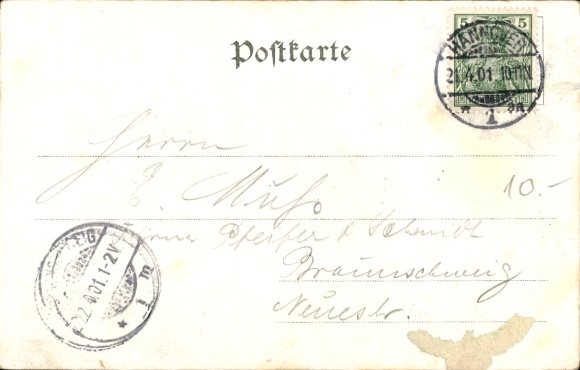 Postkarte
5 5
HANNOVER
22.4.01. 10-11N
* 1 *
Herrn
E.
10.-
Pfeifer & Schmidt
Braunschweig
Neuestr.
22.4.01.1-2V
* 1 m